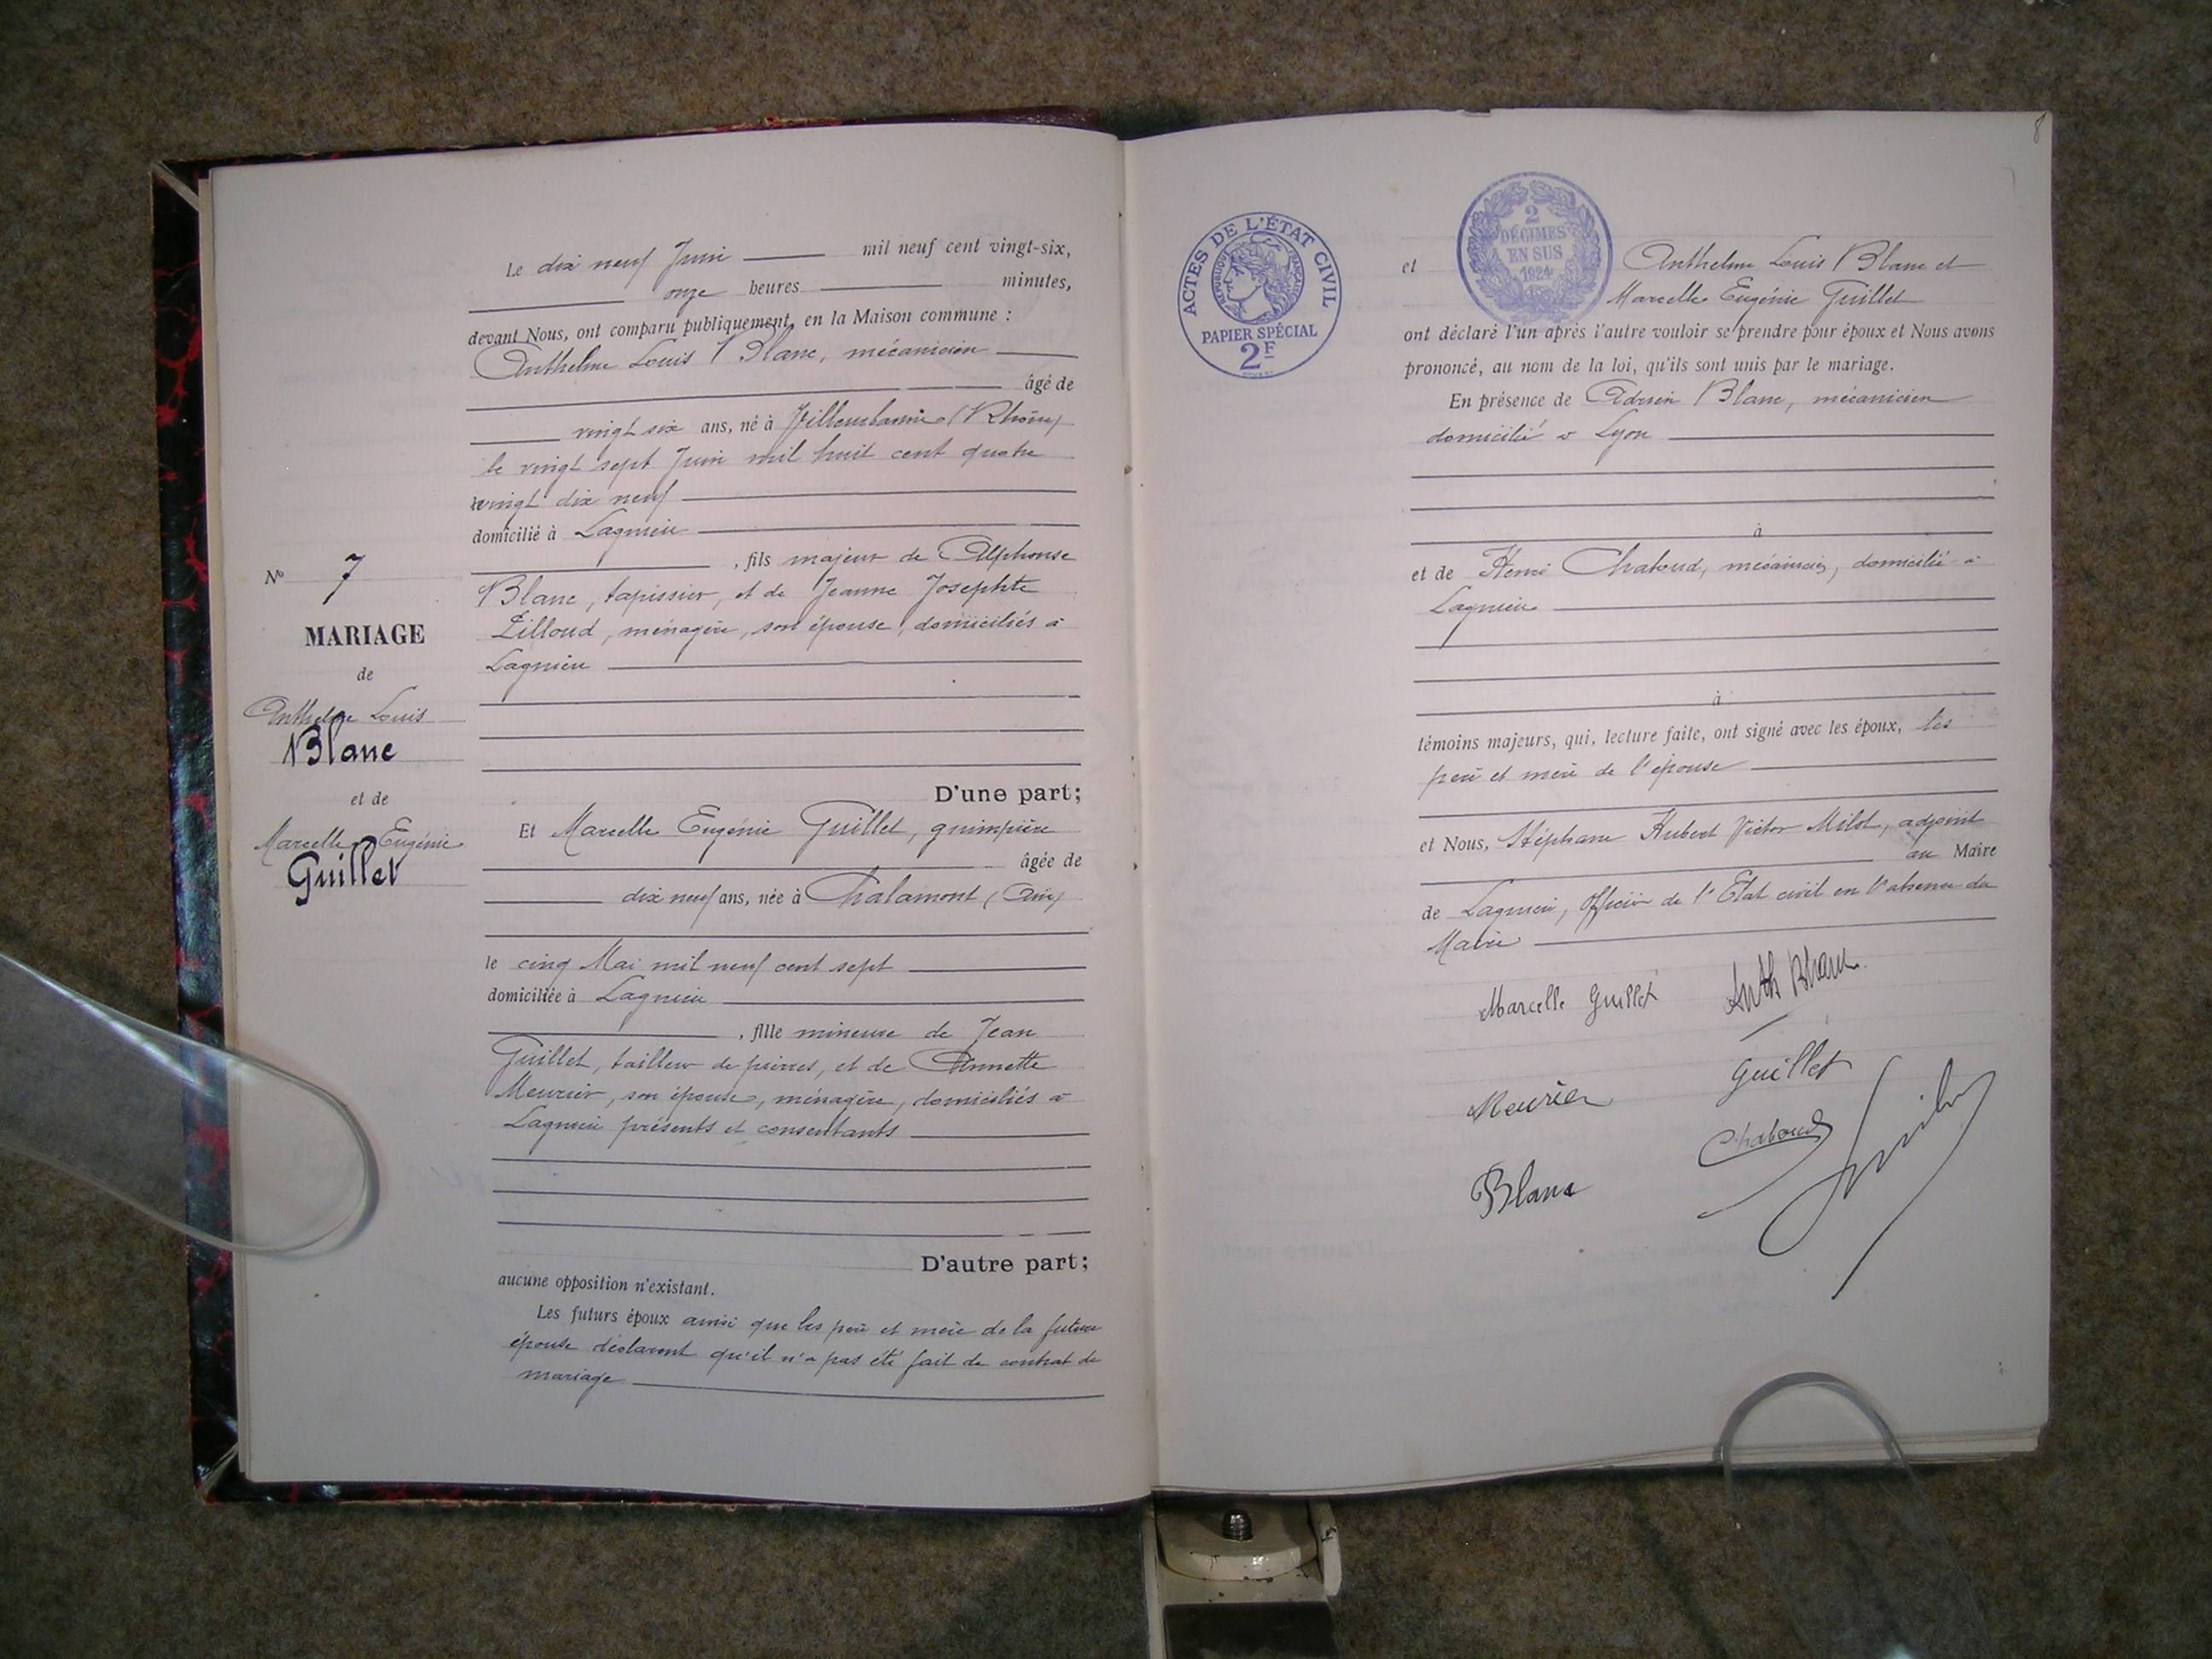 Le dix neuf Juin mil neuf cent vingt-six,
onze heures minutes,
devant Nous, ont comparu publiquement, en la Maison commune :
Anthelme Louis Blanc, mécanicien
âgé de
vingt six ans, né à Villeurbanne (Rhône)
le vingt sept Juin mil huit cent quatre
vingt dix neuf
domicilié à Lagnieu
, fils majeur de Alphonse
Blanc, tapissier, et de Jeanne Josephte
Lilloud, ménagère, son épouse, domiciliés à
Lagnieu
No 7
MARIAGE
de
Anthelme Louis
Blanc
et de
Marcelle Eugénie
Guillet
D'une part;
Et Marcelle Eugénie Guillet, guimpière
âgée de
dix neuf ans, née à Chalamont (Ain)
le cinq Mai mil neuf cent sept
domiciliée à Lagnieu
, fille mineure de Jean
Guillet, tailleur de pierres, et de Annette
Meurier, son épouse, ménagère, domiciliés à
Lagnieu présents et consentants
D'autre part;
aucune opposition n'existant.
Les futurs époux ainsi que les père et mère de la future
épouse déclarent qu'il n'a pas été fait de contrat de
mariage
8
ACTES DE L'ÉTAT CIVIL
RÉPUBLIQUE FRANÇAISE
PAPIER SPÉCIAL
2F
2
DÉCIMES
EN SUS
1924
et Anthelme Louis Blanc et
Marcelle Eugénie Guillet
ont déclaré l'un après l'autre vouloir se prendre pour époux et Nous avons
prononcé, au nom de la loi, qu'ils sont unis par le mariage.
En présence de Adrien Blanc, mécanicien
domicilié à Lyon
à
et de Henri Chaboud, mécanicien, domicilié à
Lagnieu
à
témoins majeurs, qui, lecture faite, ont signé avec les époux, les
père et mère de l'épouse
et Nous, Stéphane Hubert Victor Milot, adjoint
au Maire
de Lagnieu, Officier de l'Etat civil en l'absence du
Maire
Marcelle Guillet Anth Blanc
Guillet
Meurier
Chaboud
Blanc